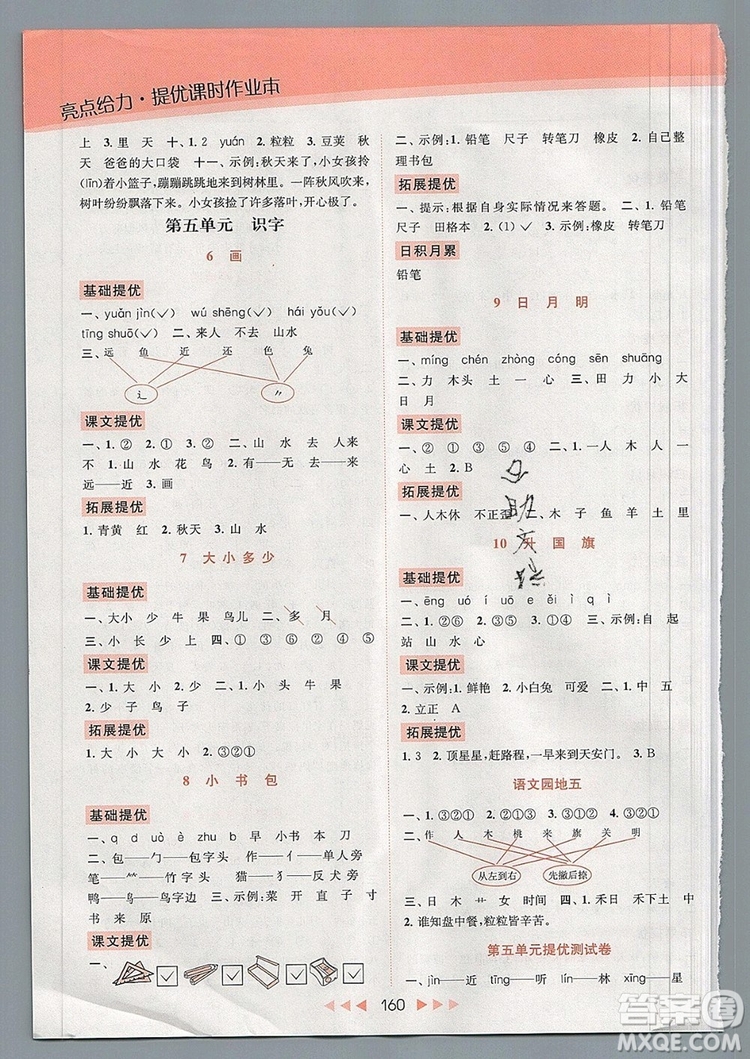 亮点给力·提优课时作业本
上　3.里　天　十、1.2　yuán　2.粒粒　3.豆荚　秋
天　爸爸的大口袋　十一、示例:秋天来了,小女孩拎
(līn)着小篮子,蹦蹦跳跳地来到树林里。一阵秋风吹来,
树叶纷纷飘落下来。小女孩捡了许多落叶,开心极了。
第五单元　识字
6　画
基础提优
一、yuǎn jìn(✓)　wú shēng(✓)　hái yǒu(✓)
tīng shuō(✓)　二、来人　不去　山水
三、远　鱼　近　还　色　兔
辶
⺈
课文提优
一、1.①　②　2.①　③　二、山　水　去　人来
不　1.山　水　花　鸟　2.有——无　来——去
远——近　3.画
拓展提优
1.青黄　红　2.秋天　3.山　水
7　大小多少
基础提优
一、大小　少　牛　果　鸟儿　二、多　月
三、小　长　少　上　四、①　③　⑥　②　④　⑤
课文提优
一、1.大　小　2.多　少　二、1.大　小　牛　果
2.少　子　鸟子
拓展提优
1.大　小　大　小　2.③②①
8　小书包
基础提优
一、q　d　uò　è　zhu　b　早　小　书　本　刀
二、包——勹——包字头　作——亻——单人旁
笔——⺮——竹字头　猫——犭——反犬旁
鸭——鸟——鸟字边　三、示例:菜　开　直　子　寸
书　来　原
课文提优
一、
二、示例:1.铅笔　尺子　转笔刀　橡皮　2.自己整
理书包
拓展提优
一、提示:根据自身实际情况来答题。二、1.铅笔
尺子　田格本　2.(1)✓　3.示例:橡皮　转笔刀
日积月累
铅笔
9　日　月　明
基础提优
一、míng　chén　zhòng　cóng　sēn　shuāng
二、力　木　头　土　心　三、田　力　小　大
日　月
课文提优
一、②　①　③　⑤　④　二、1.一人　木　人　一
心　土　2.B
拓展提优
一、人木休　不正歪　二、木　子　鱼　羊　土　里
10　升　国　旗
基础提优
一、ēng　uó　í　uǒ　e　ěi　ì　q　ì
二、1.①④⑥　2.③⑤　②　三、示例:自　起
站　山　水　心
课文提优
一、示例:1.鲜艳　2.小白兔　可爱　二、1.五
2.立正　A
拓展提优
1.3　2.顶星星,赶路程,一早来到天安门。3.B
语文园地五
一、1.③②①　2.③①②　3.③②①
二、作　人　木　桃　来　旗　关　明
从左到右
先撇后捺
三、日　木　艹　女　时间　四、1.禾　日　木
2.谁知盘中餐,粒粒皆辛苦。
第五单元提优测试卷
一、jìn——近　tīng——听　lín——林　xīng——星
160
答案圈
MXQE.COM